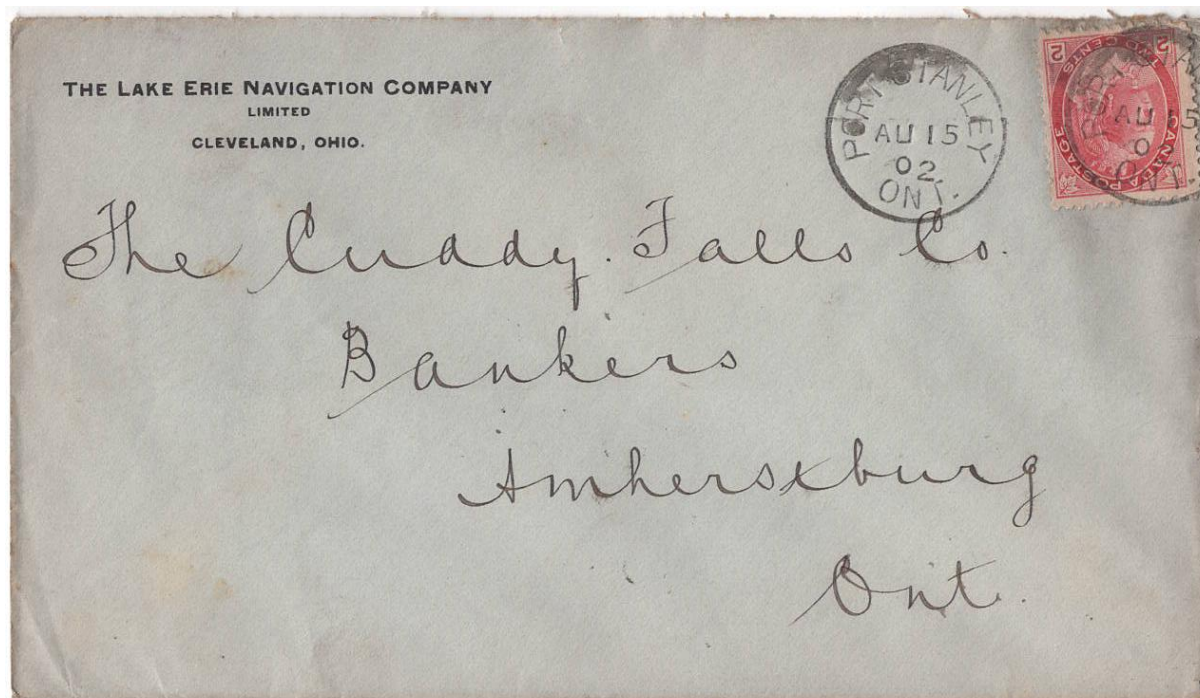 THE LAKE ERIE NAVIGATION COMPANY
LIMITED
CLEVELAND, OHIO.
PORT STANLEY
AU 15
02
ONT.
2 TWO CENTS 2
CANADA POSTAGE
PORT STA
AU 15
0
ONT.
The Cuddy. Falls Co.
Bankers
Amherstburg
Ont.